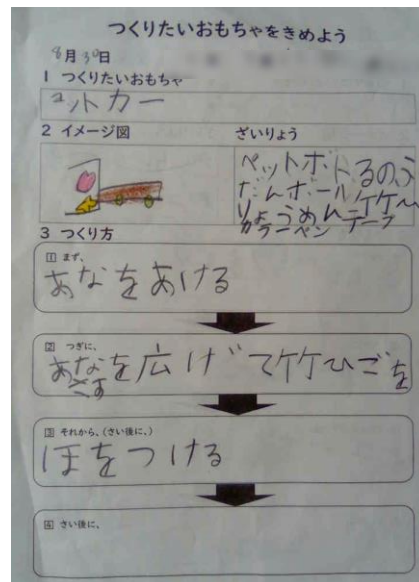 つくりたいおもちゃをきめよう
8月30日
1 つくりたいおもちゃ
ヨットカー
2 イメージ図
ざいりょう
ペットボトるのふ
だんボール 竹ぐし
りょうめんテープ
カラーペン
3 つくり方
1 まず、
あなをあける
2 つぎに、
あなを広げて竹ひごを
さす
3 それから、(さい後に、)
ほをつける
4 さい後に、